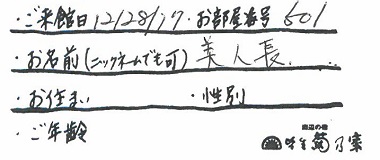 ・ご来館日 12/28/17・お部屋番号 501
・お名前(ニックネームでも可) 美人長
・お住まい ・性別
・ご年齢
湖辺の宿